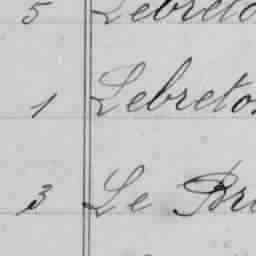 5 Lebreto
1 Lebreto
3 Le Bri